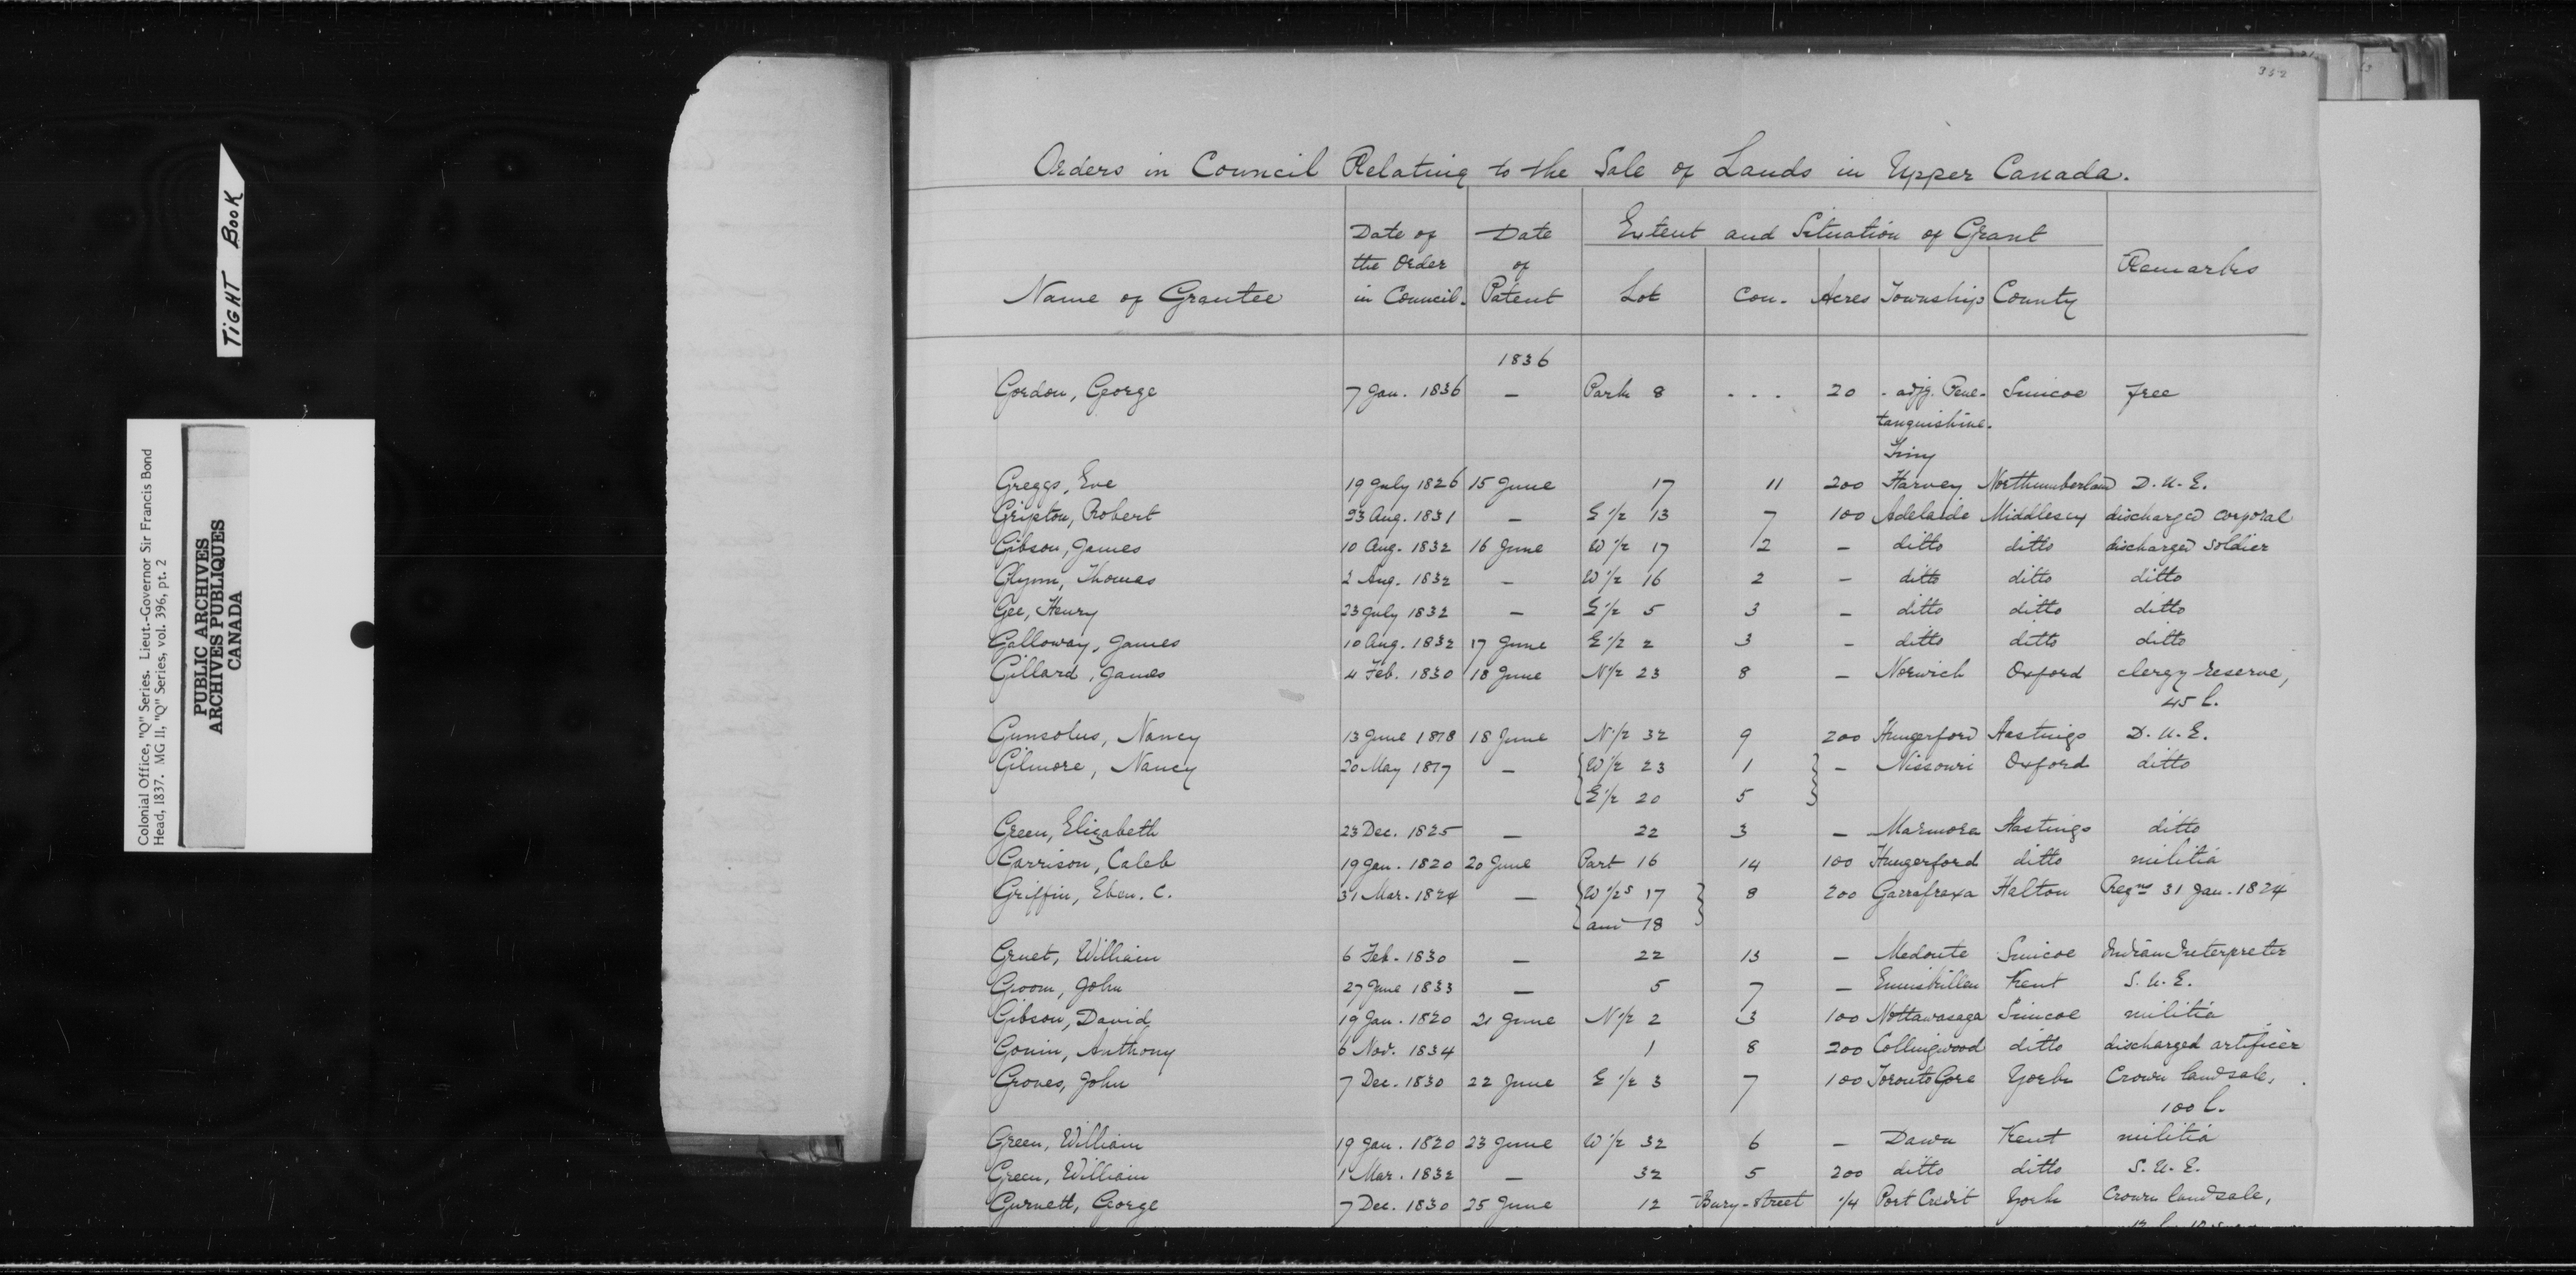 TIGHT BOOK
Colonial Office, "Q" Series. Lieut.-Governor Sir Francis Bond
Head, 1837. MG 11, "Q" Series, vol. 396, pt. 2
PUBLIC ARCHIVES
ARCHIVES PUBLIQUES
CANADA
Orders in Council Relating to the Sale of Lands in Upper Canada.
Name of Grantee Date of the Order in Council. Date of Patent Extent and Situation of Grant Remarks
Lot Con. Acres Township County
1836
Gordon, George 7 Jan. 1836 — Park 8 ... 20 - adjg. Pene- Simcoe free
tanguishine.
Tiny
Greggs, Eve 19 July 1826 15 June 17 11 200 Harvey Northumberland D.U.E.
Gripton, Robert 23 Aug. 1831 — E 1/2 13 7 100 Adelaide Middlesex discharged corporal
Gibson, James 10 Aug. 1832 16 June W 1/2 17 2 — ditto ditto discharged soldier
Glynn, Thomas 2 Aug. 1832 — W 1/2 16 2 — ditto ditto ditto
Gee, Henry 23 July 1832 — E 1/2 5 3 — ditto ditto ditto
Galloway, James 10 Aug. 1832 17 June E 1/2 2 3 — ditto ditto ditto
Gillard, James 4 Feb. 1830 18 June N 1/2 23 8 — Norwich Oxford clergy reserve,
45 l.
Gunsolus, Nancy 13 June 1818 18 June N 1/2 32 9 200 Hungerford Hastings D.U.E.
Gilmore, Nancy 20 May 1817 — W 1/2 23 1 — Nissouri Oxford ditto
E 1/2 20 5
Green, Elizabeth 23 Dec. 1825 — 22 3 — Marmora Hastings ditto
Garrison, Caleb 19 Jan. 1820 20 June Part 16 14 100 Hungerford ditto militia
Griffin, Eben. C. 31 Mar. 1824 — W 1/2s 17 8 200 Garrafraxa Halton Regns 31 Jan. 1824
and 18
Gruet, William 6 Feb. 1830 — 22 13 — Medonte Simcoe Indian Interpreter
Groom, John 27 June 1833 — 5 7 — Enniskillen Kent S.U.E.
Gibson, David 19 Jan. 1820 21 June N 1/2 2 3 100 Nottawasaga Simcoe militia
Gouin, Anthony 6 Nov. 1834 1 8 200 Collingwood ditto discharged artificer
Groves, John 7 Dec. 1830 22 June E 1/2 3 7 100 Toronto Gore York Crown land sale,
100 l.
Green, William 19 Jan. 1820 23 June W 1/2 32 6 — Dawn Kent militia
Green, William 1 Mar. 1832 — 32 5 200 ditto ditto S.U.E.
Gurnett, George 7 Dec. 1830 25 June 12 Bury-Street 1/4 Port Credit York Crown land sale,